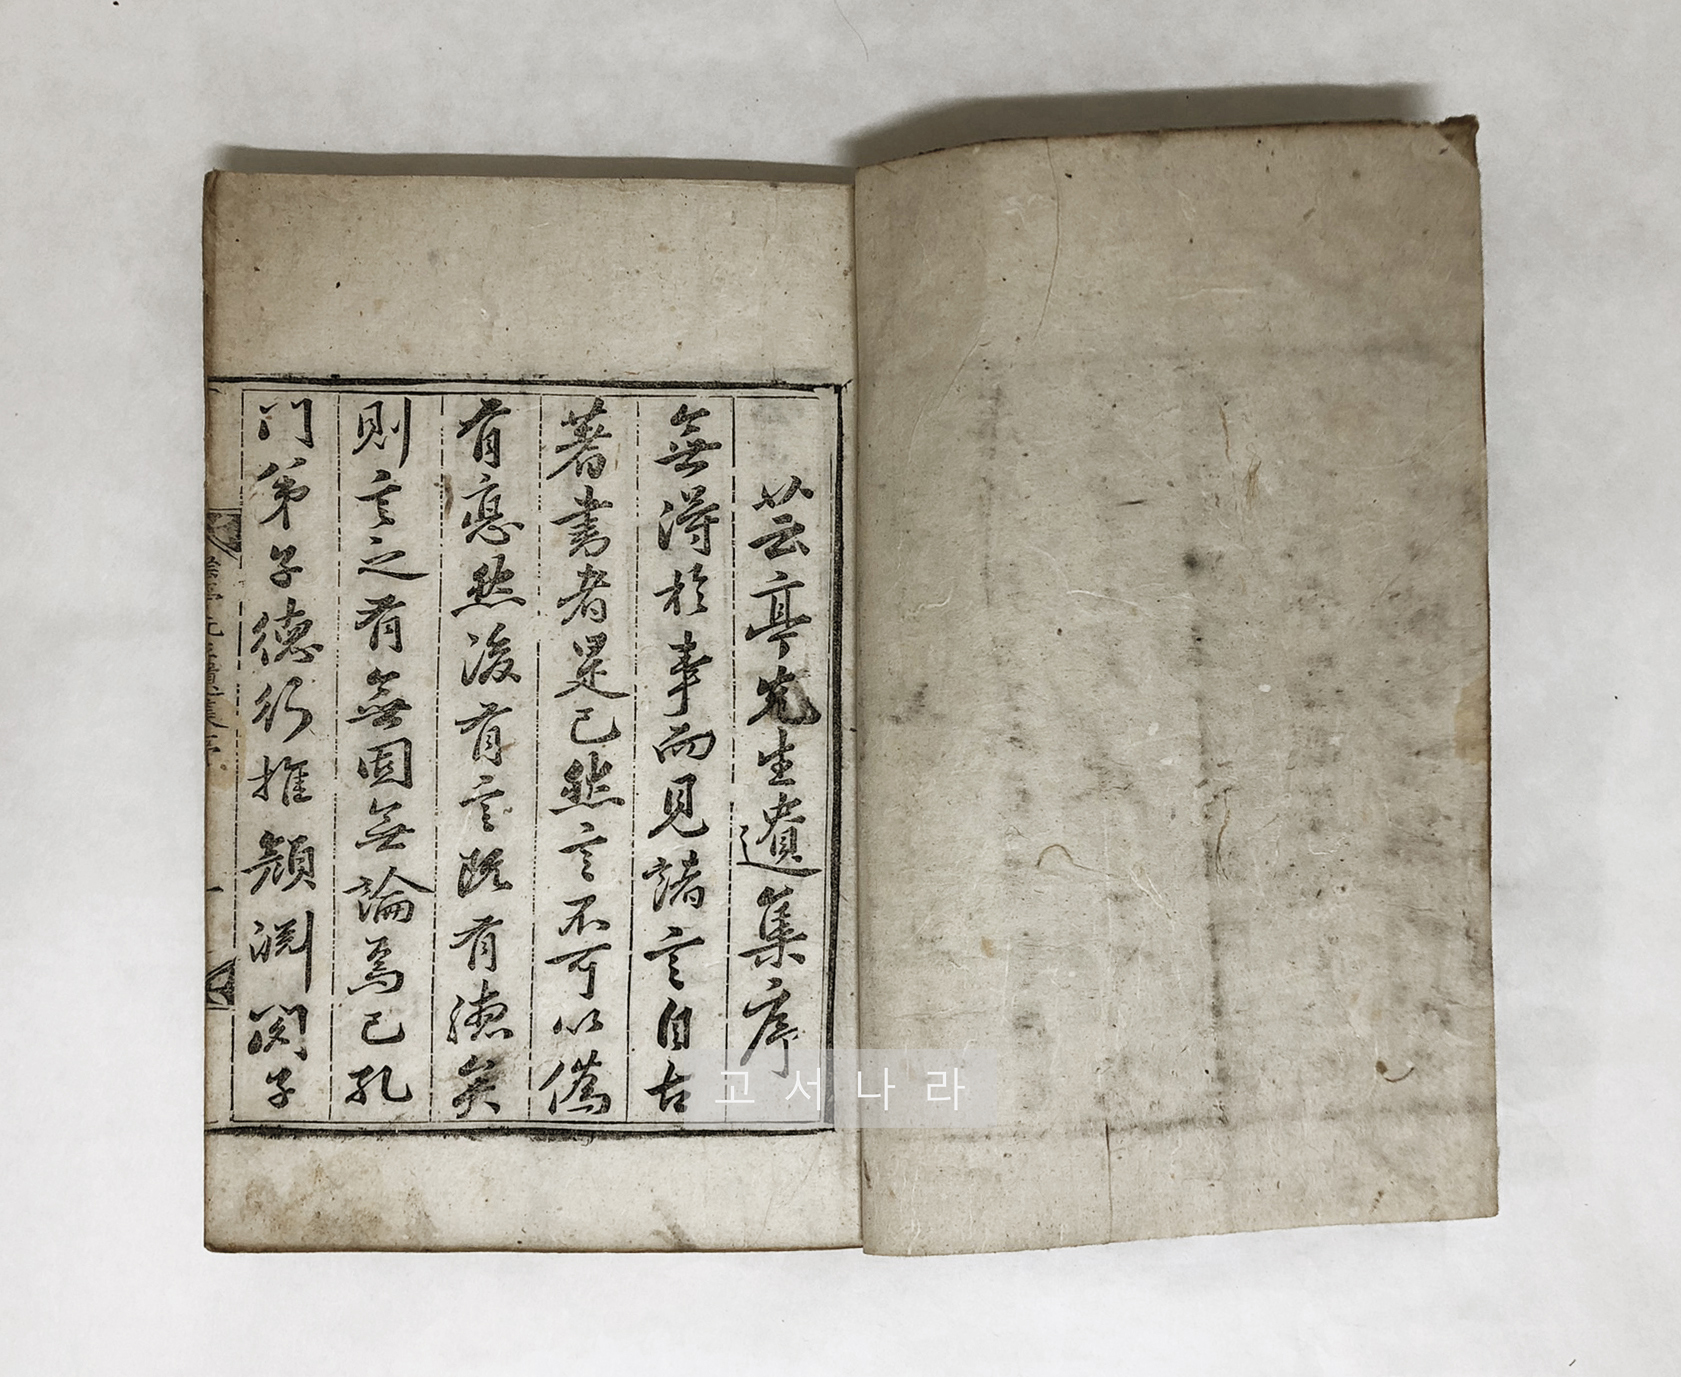 芸亭先生遺集序
無得於事而見諸言自古
著書者是已然言不可以僞
有悳然後有言既有德矣
則言之有無固無論焉已孔
门弟子德行推顔淵閔子
고서나라